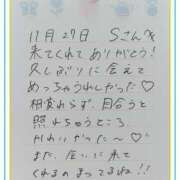 11月27日 Sさんへ
来てくれてありがとう!
久しぶりに会えて
めっちゃうれしかった♡
相変わらず、目合うと
照れちゃうところ、
かわいかった〜♡
また、会いに来て
くれるのまってるね!!